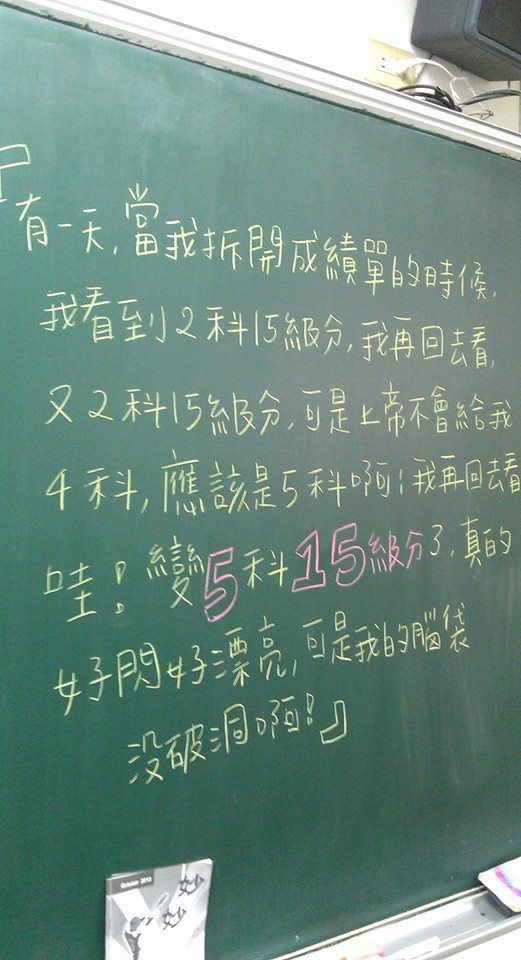 「有一天,當我拆開成績單的時候,
我看到2科15級分,我再回去看,
又2科15級分,可是上帝不會給我
4科,應該是5科啊!我再回去看
哇!變5科15級分了,真的
好閃好漂亮,可是我的腦袋
沒破洞啊!」
October 2013
妙
妙